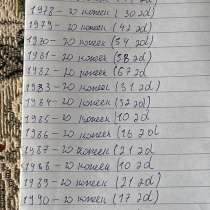 1978 - 20 копеек (30 zd)
1979 - 20 копеек (42 zd)
1980 - 20 копеек (54 zd)
1981 - 20 копеек (58 zd)
1982 - 20 копеек (67 zd)
1983 - 20 копеек (31 zd)
1984 - 20 копеек (32 zd)
1985 - 20 копеек (10 zd)
1986 - 20 копеек (16 zd)
1987 - 20 копеек (21 zd)
1988 - 20 копеек (10 zd)
1989 - 20 копеек (21 zd)
1990 - 20 копеек (17 zd)